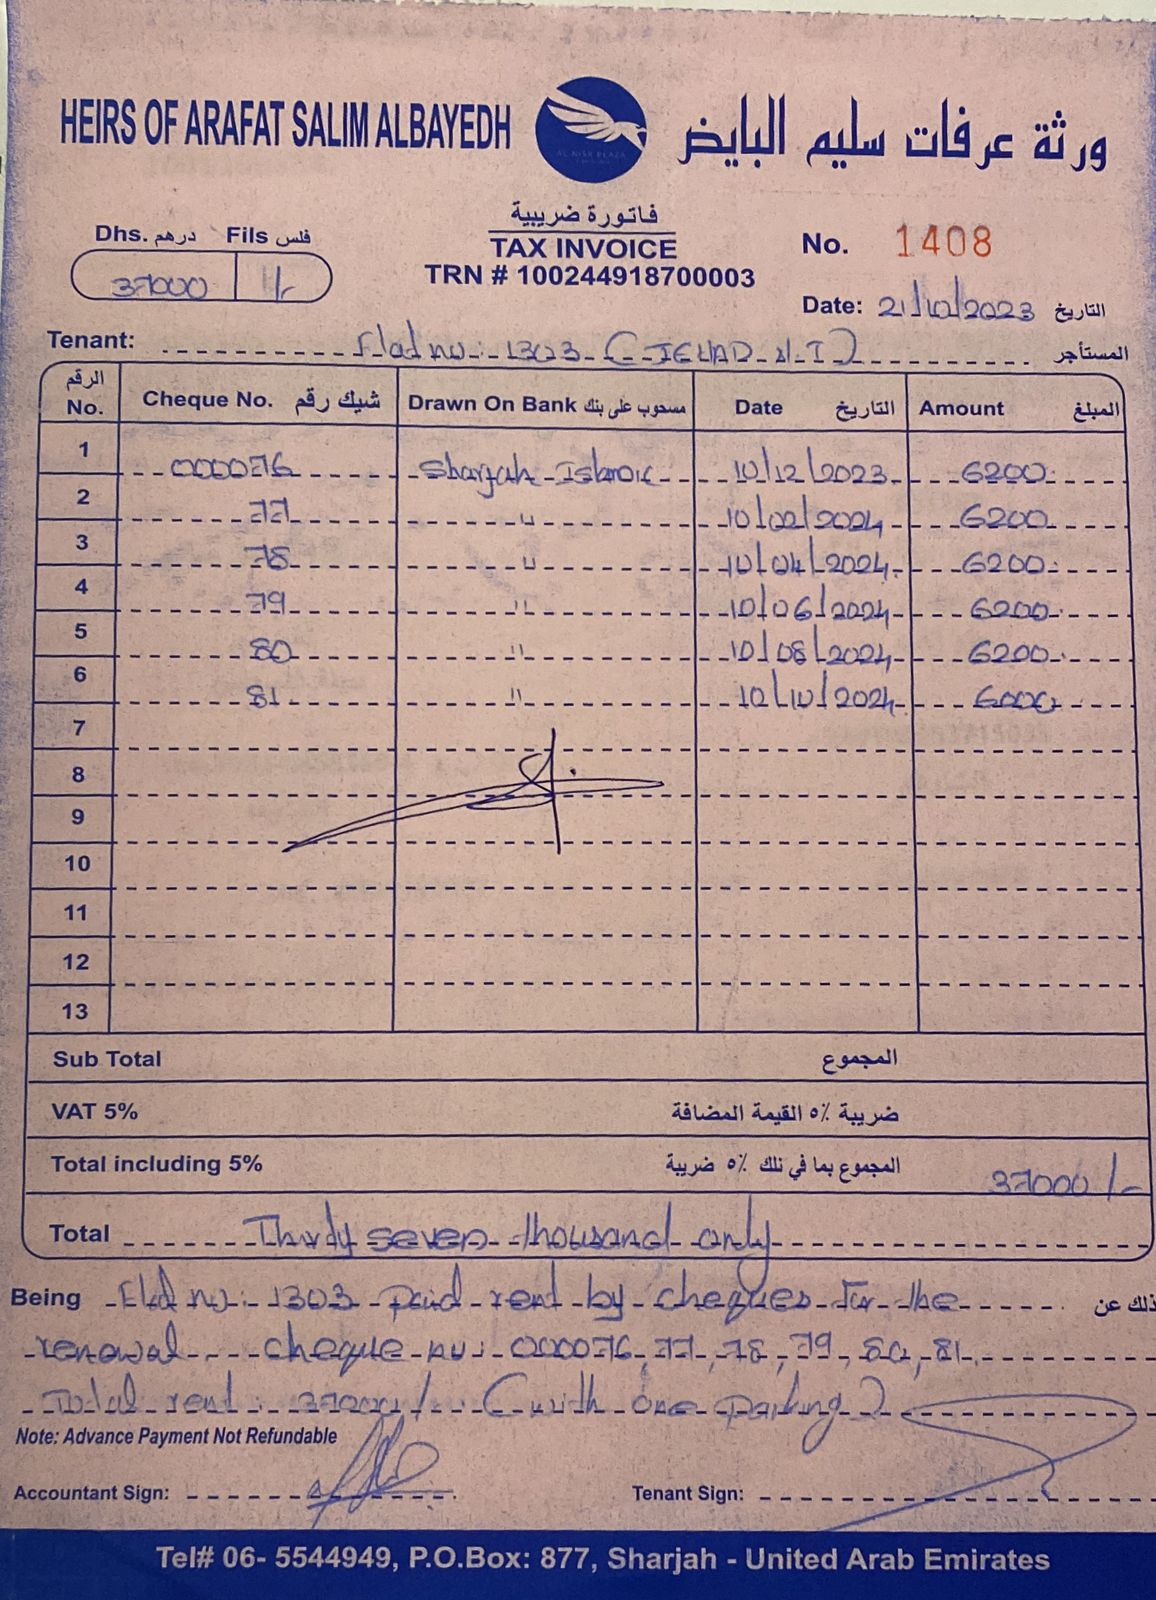 HEIRS OF ARAFAT SALIM ALBAYEDH
ورثة عرفات سليم البايض
AL NISR PLAZA
فاتورة ضريبية
TAX INVOICE
TRN # 100244918700003
Dhs. درهم Fils فلس
37000 /-
No. 1408
Date: 21/10/2023 التاريخ
Tenant: Flat no: 1303 (JEHAD N.I) المستأجر
الرقم No. Cheque No. شيك رقم Drawn On Bank مسحوب على بنك Date التاريخ Amount المبلغ
1 000076 Sharjah Islamic 10/12/2023 6200
2 77 " 10/02/2024 6200
3 78 " 10/04/2024 6200
4 79 " 10/06/2024 6200
5 80 " 10/08/2024 6200
6 81 " 10/10/2024 6000
7
8
9
10
11
12
13
Sub Total المجموع
VAT 5% ضريبة ٥٪ القيمة المضافة
Total including 5% المجموع بما في ذلك ٥٪ ضريبة 37000/-
Total Thirty seven thousand only
Being Flat no: 1303 paid rent by cheques for the ذلك عن
renewal cheque no: 000076, 77, 78, 79, 80, 81
Total rent: 37000/- (with one parking)
Note: Advance Payment Not Refundable
Accountant Sign:
Tenant Sign:
Tel# 06- 5544949, P.O.Box: 877, Sharjah - United Arab Emirates